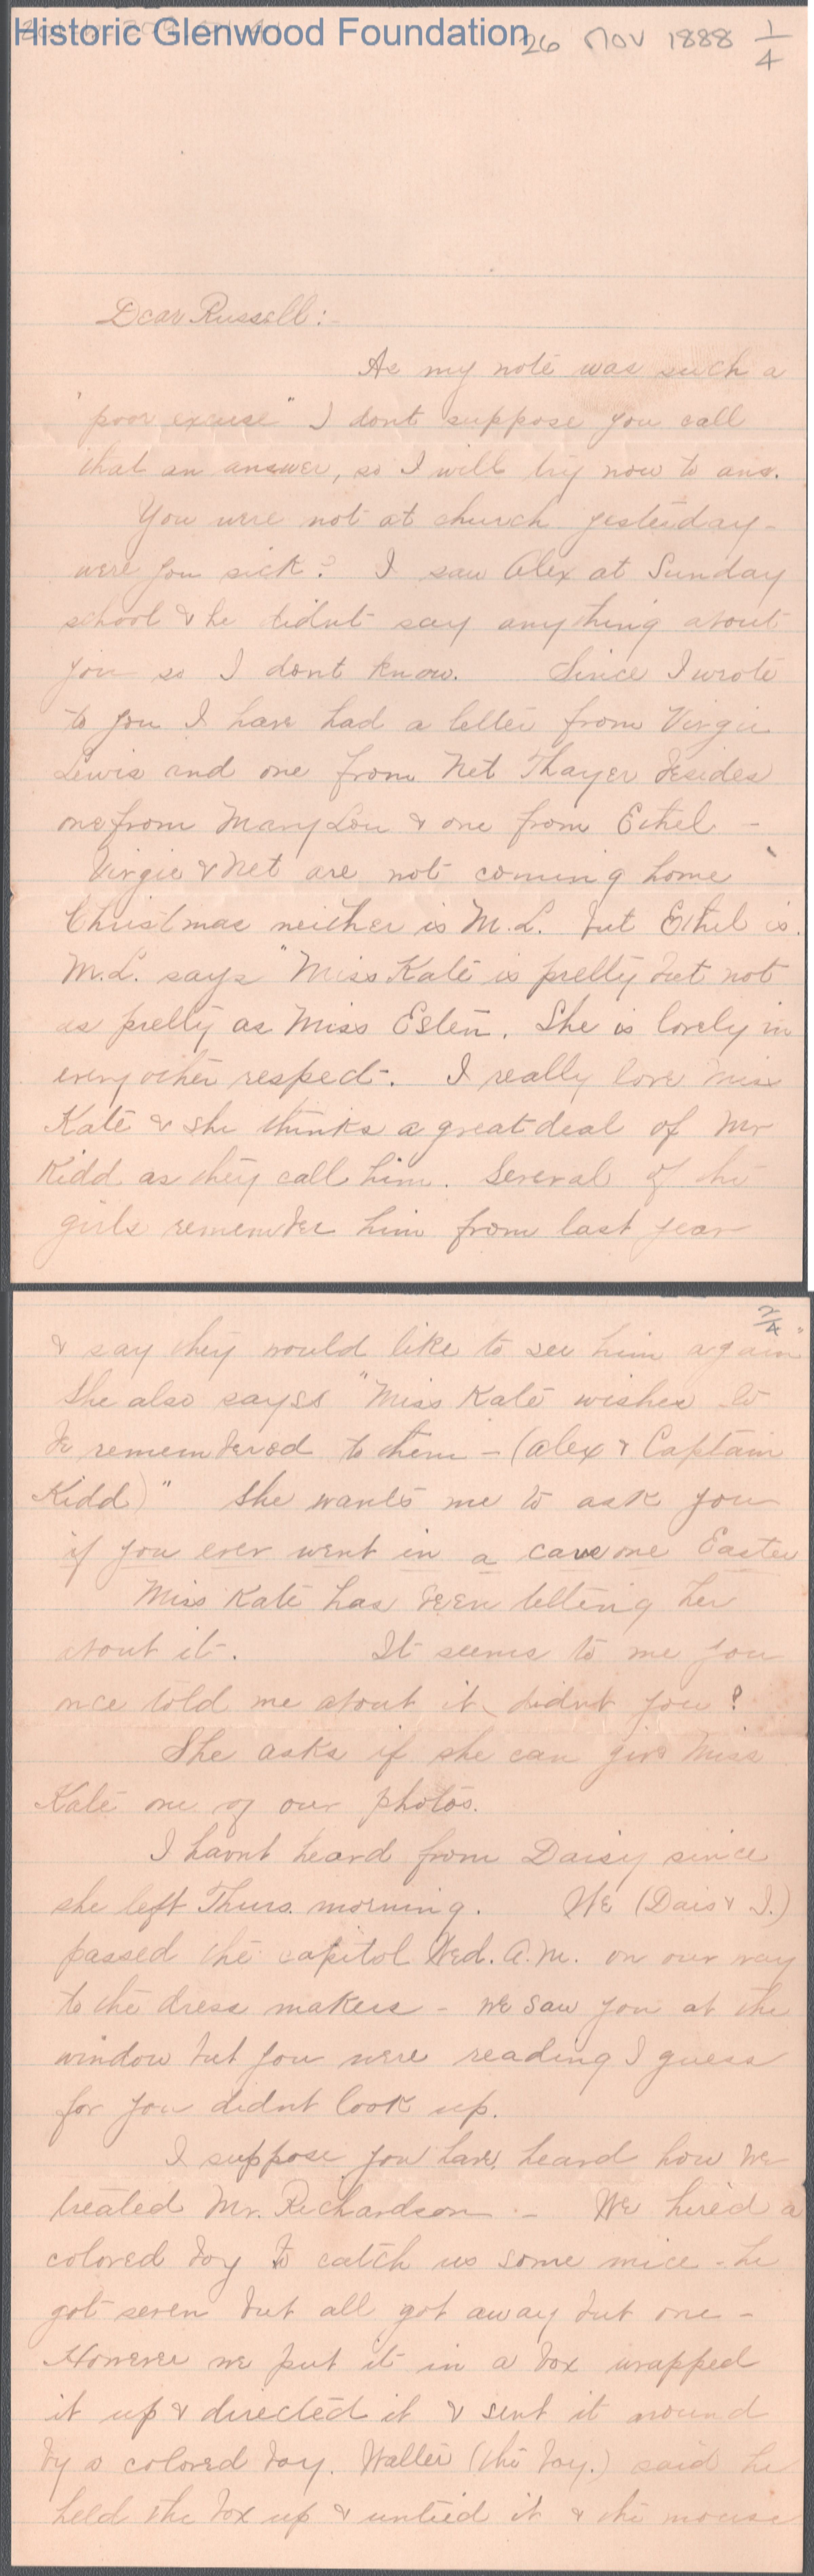 Historic Glenwood Foundation
26 Nov 1888 1/4
Dear Russell:-
As my note was such a
"poor excuse" I dont suppose you call
that an answer, so I will try now to ans.
You were not at church yesterday-
were you sick? I saw Alex at Sunday
school & he didnt say anything about
you so I dont know. Since I wrote
to you I have had a letter from Virgie
Lewis and one from Net Thayer besides
one from Mary Lou & one from Ethel -
Virgie & Net are not coming home
Christmas neither is M.L. but Ethel is.
M.L. says "Miss Kate is pretty but not
as pretty as Miss Esten. She is lovely in
every other respect-. I really love Miss
Kate & she thinks a great deal of Mr
Kidd as they call him. Several of the
girls remember him from last year
2/4
& say they would like to see him again"
She also sayss "Miss Kate wishes to
be remembered to them - (Alex & Captain
Kidd)" She wants me to ask you
if you ever went in a cave one Easter
Miss Kate has been telling her
about it-. It seems to me you
once told me about it, didnt you?
She asks if she can give Miss
Kate one of our photos.
I havnt heard from Daisy since
she left Thurs. morning. We (Dais & I.)
passed the capitol Wed. A.M. on our way
to the dress makers - we saw you at the
window but you were reading I guess
for you didnt look up.
I suppose you have heard how we
treated Mr. Richardson - We hired a
colored boy to catch us some mice - he
got seven but all got away but one -
However we put it in a box wrapped
it up & directed it & sent it around
by a colored boy. Walter (the boy.) said he
held the box up & untied it & the mouse